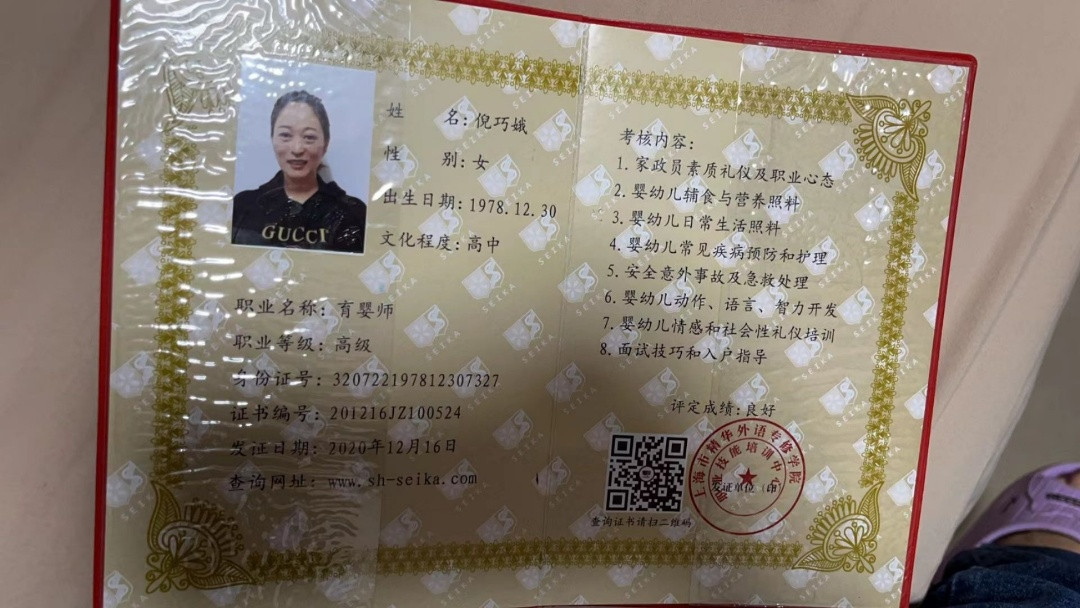 GUCCI
姓 名：倪巧娥
性 别：女
出生日期：1978.12.30
文化程度：高中
职业名称：育婴师
职业等级：高级
身份证号：320722197812307327
证书编号：201216JZ100524
发证日期：2020年12月16日
查询网址：www.sh-seika.com
考核内容：
1. 家政员素质礼仪及职业心态
2. 婴幼儿辅食与营养照料
3. 婴幼儿日常生活照料
4. 婴幼儿常见疾病预防和护理
5. 安全意外事故及急救处理
6. 婴幼儿动作、语言、智力开发
7. 婴幼儿情感和社会性礼仪培训
8. 面试技巧和入户指导
评定成绩：良好
上海市精华外语专修学院
职业技能培训中心
发证单位（印）
查询证书请扫二维码
SEIKA